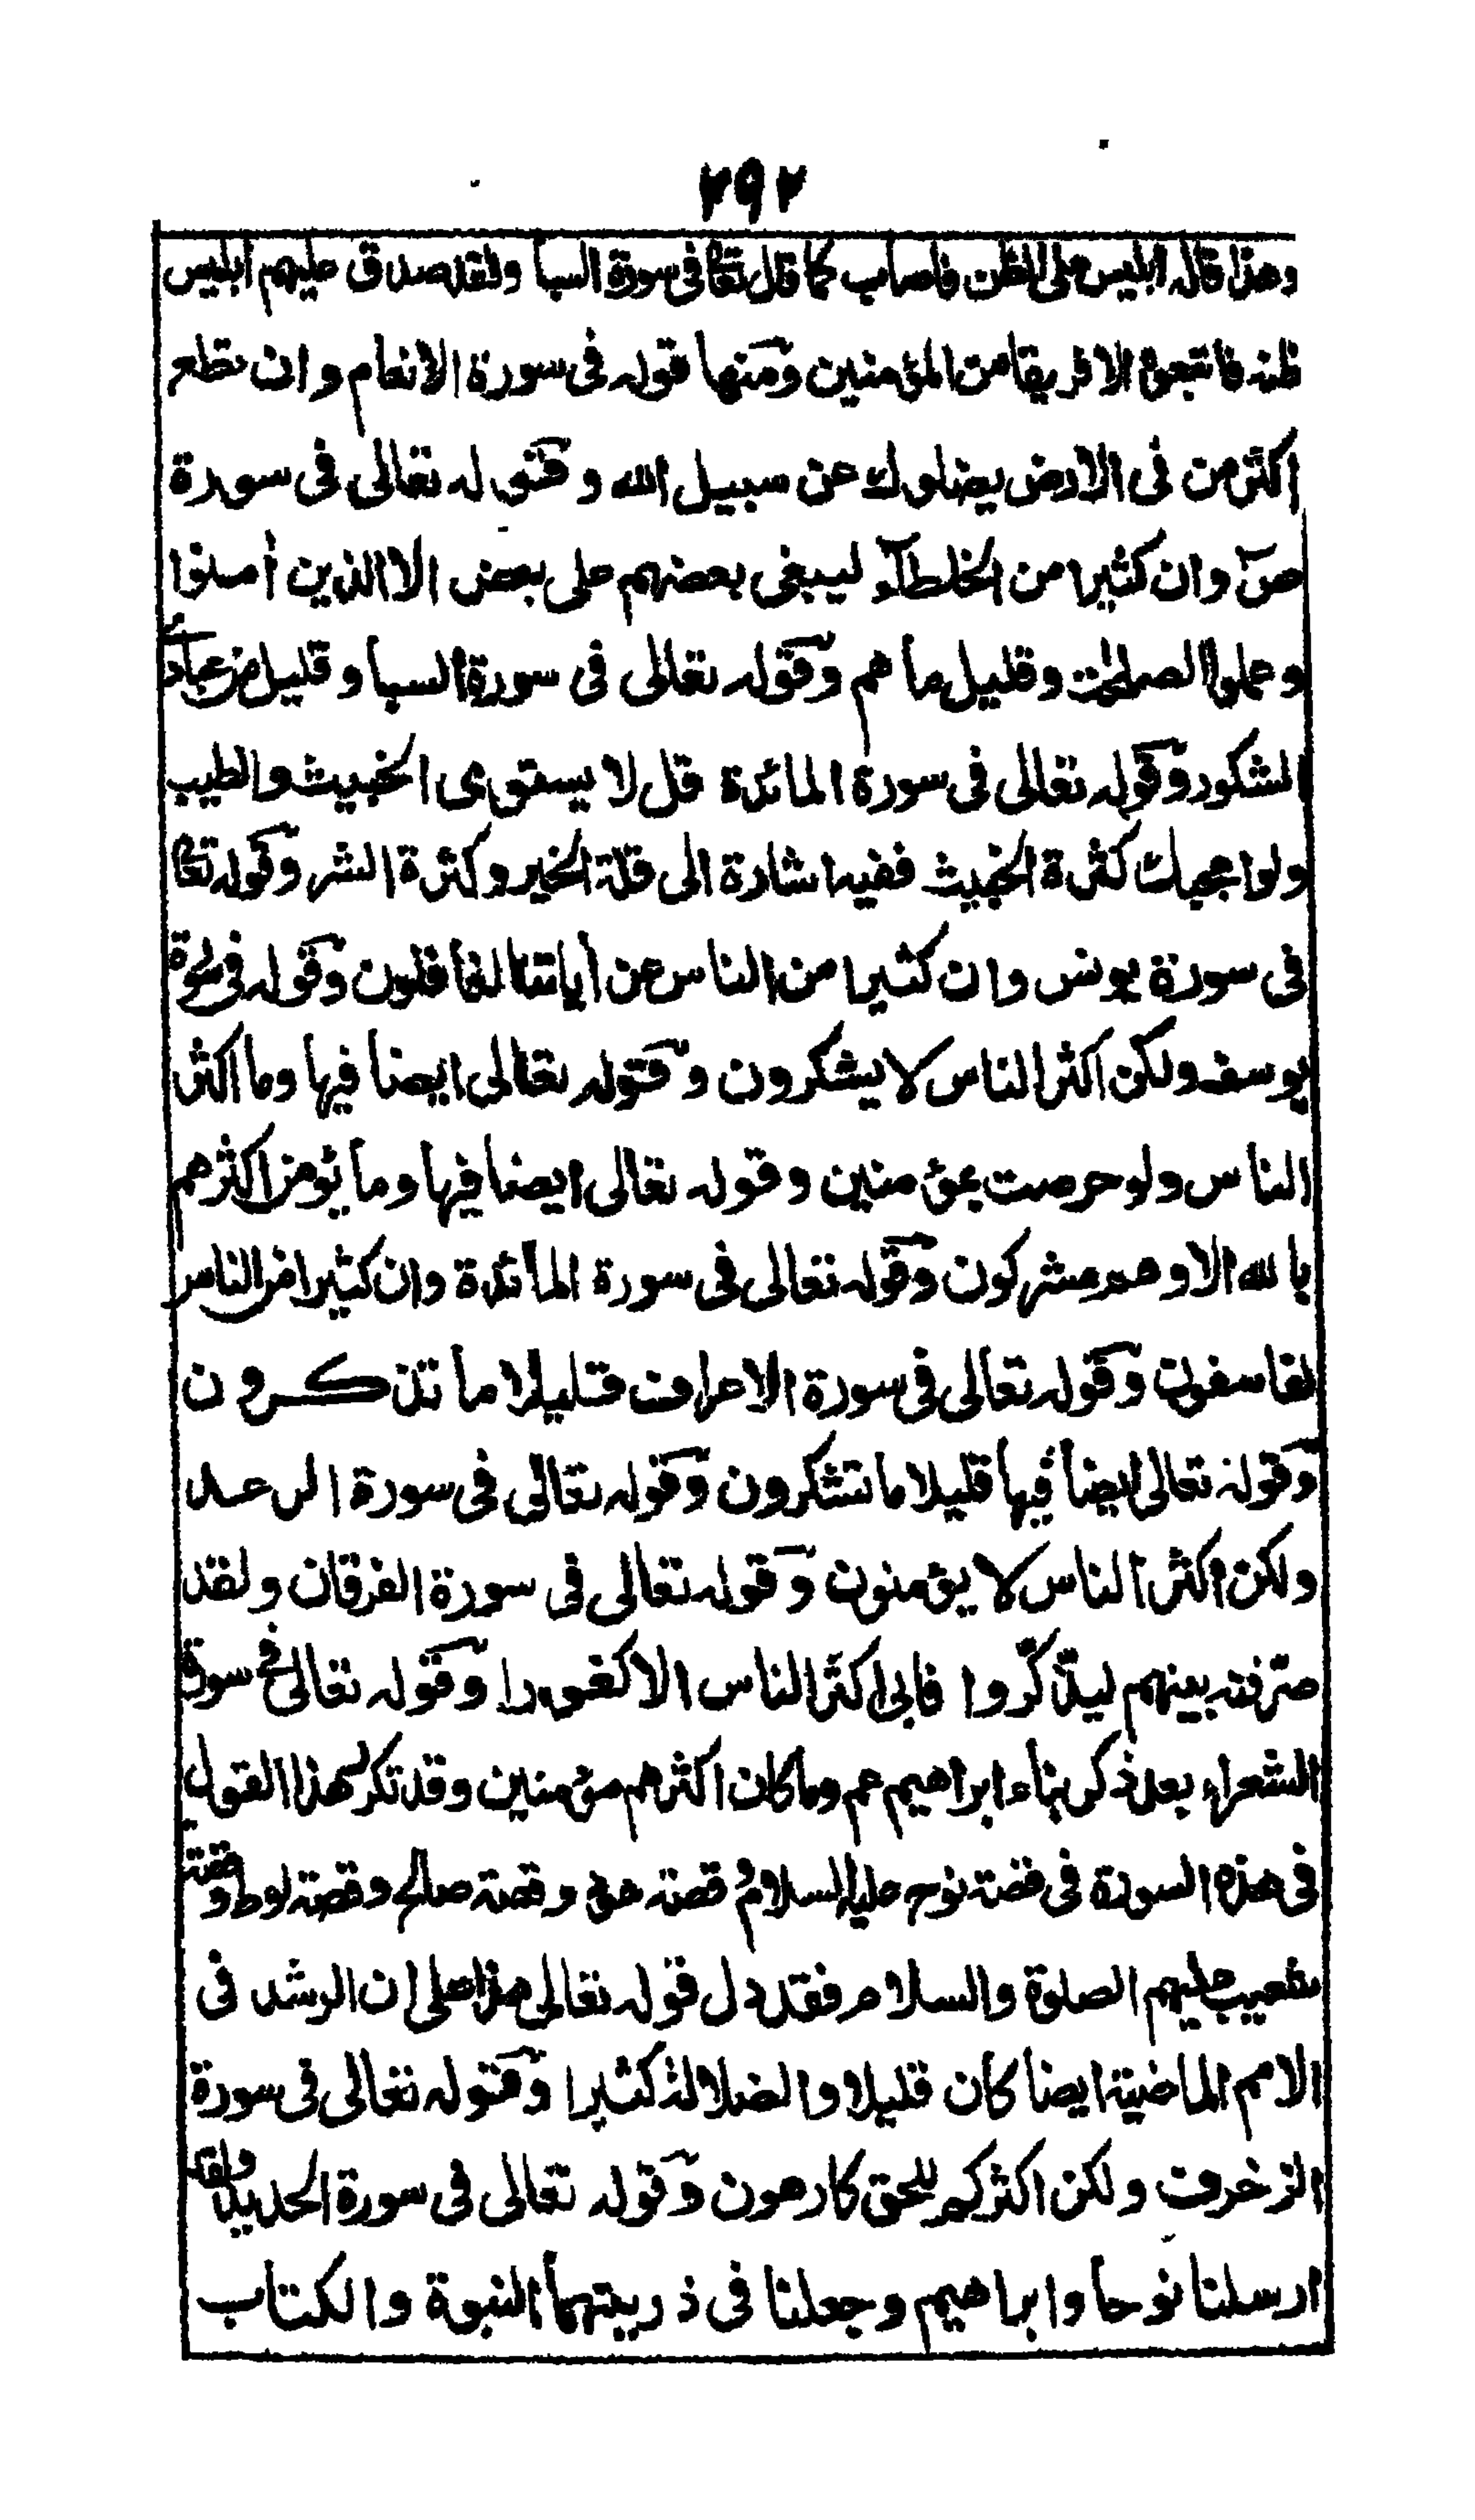 ٢٩٢
وهذا قاله ابليس على الظن فاصاب كما قال تعا فى سورة السبا ولقد صدق عليهم ابليس
ظنه فاتبعوه الا فريقا من المؤمنين ومنها قوله فى سورة الانعام وان تطع
اكثر من فى الارض يضلوك عن سبيل الله وقوله تعالى فى سورة
صٓ وان كثيرا من الخلطآء ليبغى بعضهم على بعض الا الذين أمنوا
وعملوا الصلحٰت وقليل ما هم وقوله تعالى فى سورة السبا وقليل من عبادى
الشكور وقوله تعالى فى سورة المائدة قل لا يستوى الخبيث والطيب
ولو اعجبك كثرة الخبيث ففيه اشارة الى قلة الخير وكثرة الشر وقوله تعا
فى سورة يونس وان كثيرا من الناس عن أياتنا لغافلون وقوله فى سورة
يوسف ولكن اكثر الناس لا يشكرون وقوله تعالى ايضا فيها وما اكثر
الناس ولو حرصت بمؤمنين وقوله تعالى ايضا فيها وما يؤمن اكثرهم
بالله الا وهم مشركون وقوله تعالى فى سورة المائدة وان كثيرا من الناس
لفاسقون وقوله تعالى فى سورة الاعراف قليلا ما تذكرون
وقوله تعالى ايضا فيها قليلا ما تشكرون وقوله تعالى فى سورة الرعد
ولكن اكثر الناس لا يؤمنون وقوله تعالى فى سورة الفرقان ولقد
صرفنه بينهم ليذكّروا فابى اكثر الناس الا كفورا وقوله تعالى فى سورة
الشعراء بعد ذكر بناء ابراهيم عم وما كان اكثرهم مؤمنين وقد تكرر هذا القول
فى هذه السورة فى قصة نوح عليه السلام قصة هود وقصة صالح وقصة لوط وقصة
شعيب عليهم الصلوة والسلام فقد دل قوله تعالى هذا على ان الرشد فى
الامم الماضية ايضا كان قليلا والضلالة كثيرا وقوله تعالى فى سورة
الزخرف ولكن اكثركم للحق كارهون وقوله تعالى فى سورة الحديد ولقد
ارسلنا نوحا وابراهيم وجعلنا فى ذريتهما النبوة والكتاب